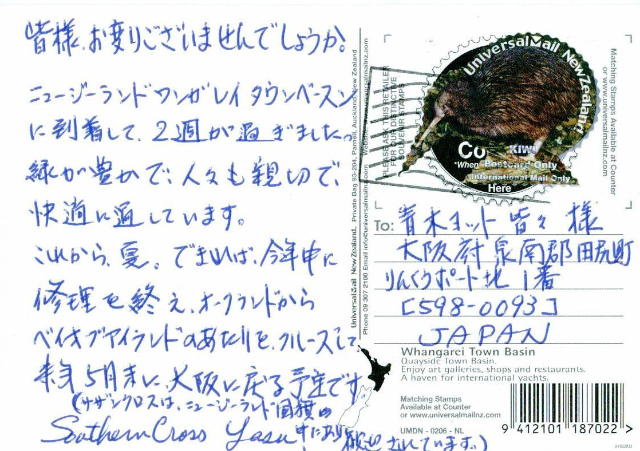 皆様、お変りございませんでしょうか。
ニュージーランド ワンガレイ タウンベースン
に到着して、2週が過ぎました。
緑が豊かで、人々も親切で、
快適に過しています。
これから、夏。できれば、今年中に
修理を終え、オークランドから
ベイオブアイランドのあたりを、クルーズして、
来年5月末に、大阪に戻る予定です。
(サザンクロスは、ニュージーランド国旗の
中にあり
されています。)
Southern Cross Yasu
UniversalMail New Zealand, Private Bag 93-204, Parnell, Auckland, New Zealand
Phone 09 307 2100 Email info@universalmailnz.com
PLEASE ASK THIS RETAILER
FOR OUR DISTINCTIVE
SOUVENIR STAMPS
www.universalmailnz.com
UniversalMail New Zealand
Kiwi
"When Postcard Only
International Mail Only
Here
Matching Stamps
Available at Counter
or www.universalmailnz.com
To:
青木ヨット 皆々様
大阪府泉南郡田尻町
りんくうポート北1番
[598-0093]
JAPAN
Whangarei Town Basin
Quayside Town Basin.
Enjoy art galleries, shops and restaurants.
A haven for international yachts.
Matching Stamps
Available at Counter
or www.universalmailnz.com
UMDN - 0206 - NL
9 412101 187022 >